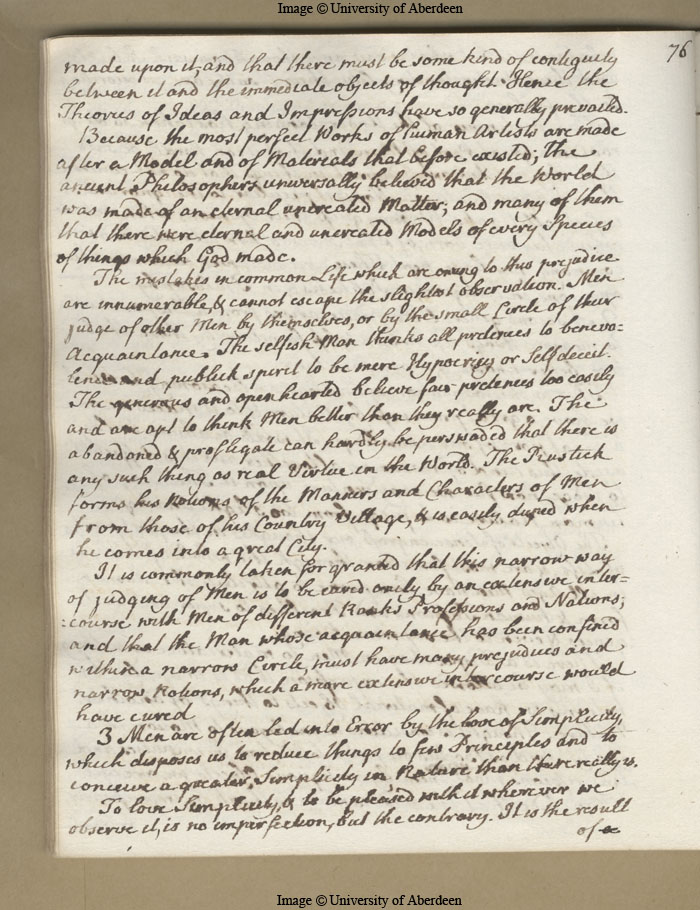 Image © University of Aberdeen
76
made upon it, and that there must be some kind of contiguity
between it and the immediate objects of thought. Hence the
Theories of Ideas and Impressions have so generally prevailed.
Because the most perfect Works of human Artists are made
after a Model and of Materials that before existed; the
ancient Philosophers universally believed that the World
was made of an eternal uncreated Matter; and many of them
that there were eternal and uncreated Models of every Species
of things which God made.
The mistakes in common Life which are owing to this prejudice
are innumerable, & cannot escape the slightest observation. Men
judge of other Men by themselves, or by the small Circle of their
Acquaintance. The selfish Man thinks all pretences to benevo=
lence and publick spirit to be mere Hypocrisy or Self deceit.
The generous and openhearted believe fair pretences too easily
and are apt to think Men better than they really are. The
abandoned & profligate can hardly be perswaded that there is
any such thing as real Virtue in the World. The Rustick
forms his Notions of the Manners and Characters of Men
from those of his Country Village, & is easily duped when
he comes into a great City.
It is commonly taken for granted that this narrow way
of judging of Men is to be cured onely by an extensive inter=
=course with Men of different Ranks Professions and Nations;
and that the Man whose acquaintance has been confined
within a narrow Circle, must have many prejudices and
narrow Notions, which a more extensive intercourse would
have cured
3 Men are often led into Error by the love of Simplicity,
which disposes us to reduce things to few Principles and to
conceive a greater Simplicity in Nature than there really is.
To love Simplicity, & to be pleased with it wherever we
observe it, is no imperfection, but the contrary. It is the result
of a
Image © University of Aberdeen